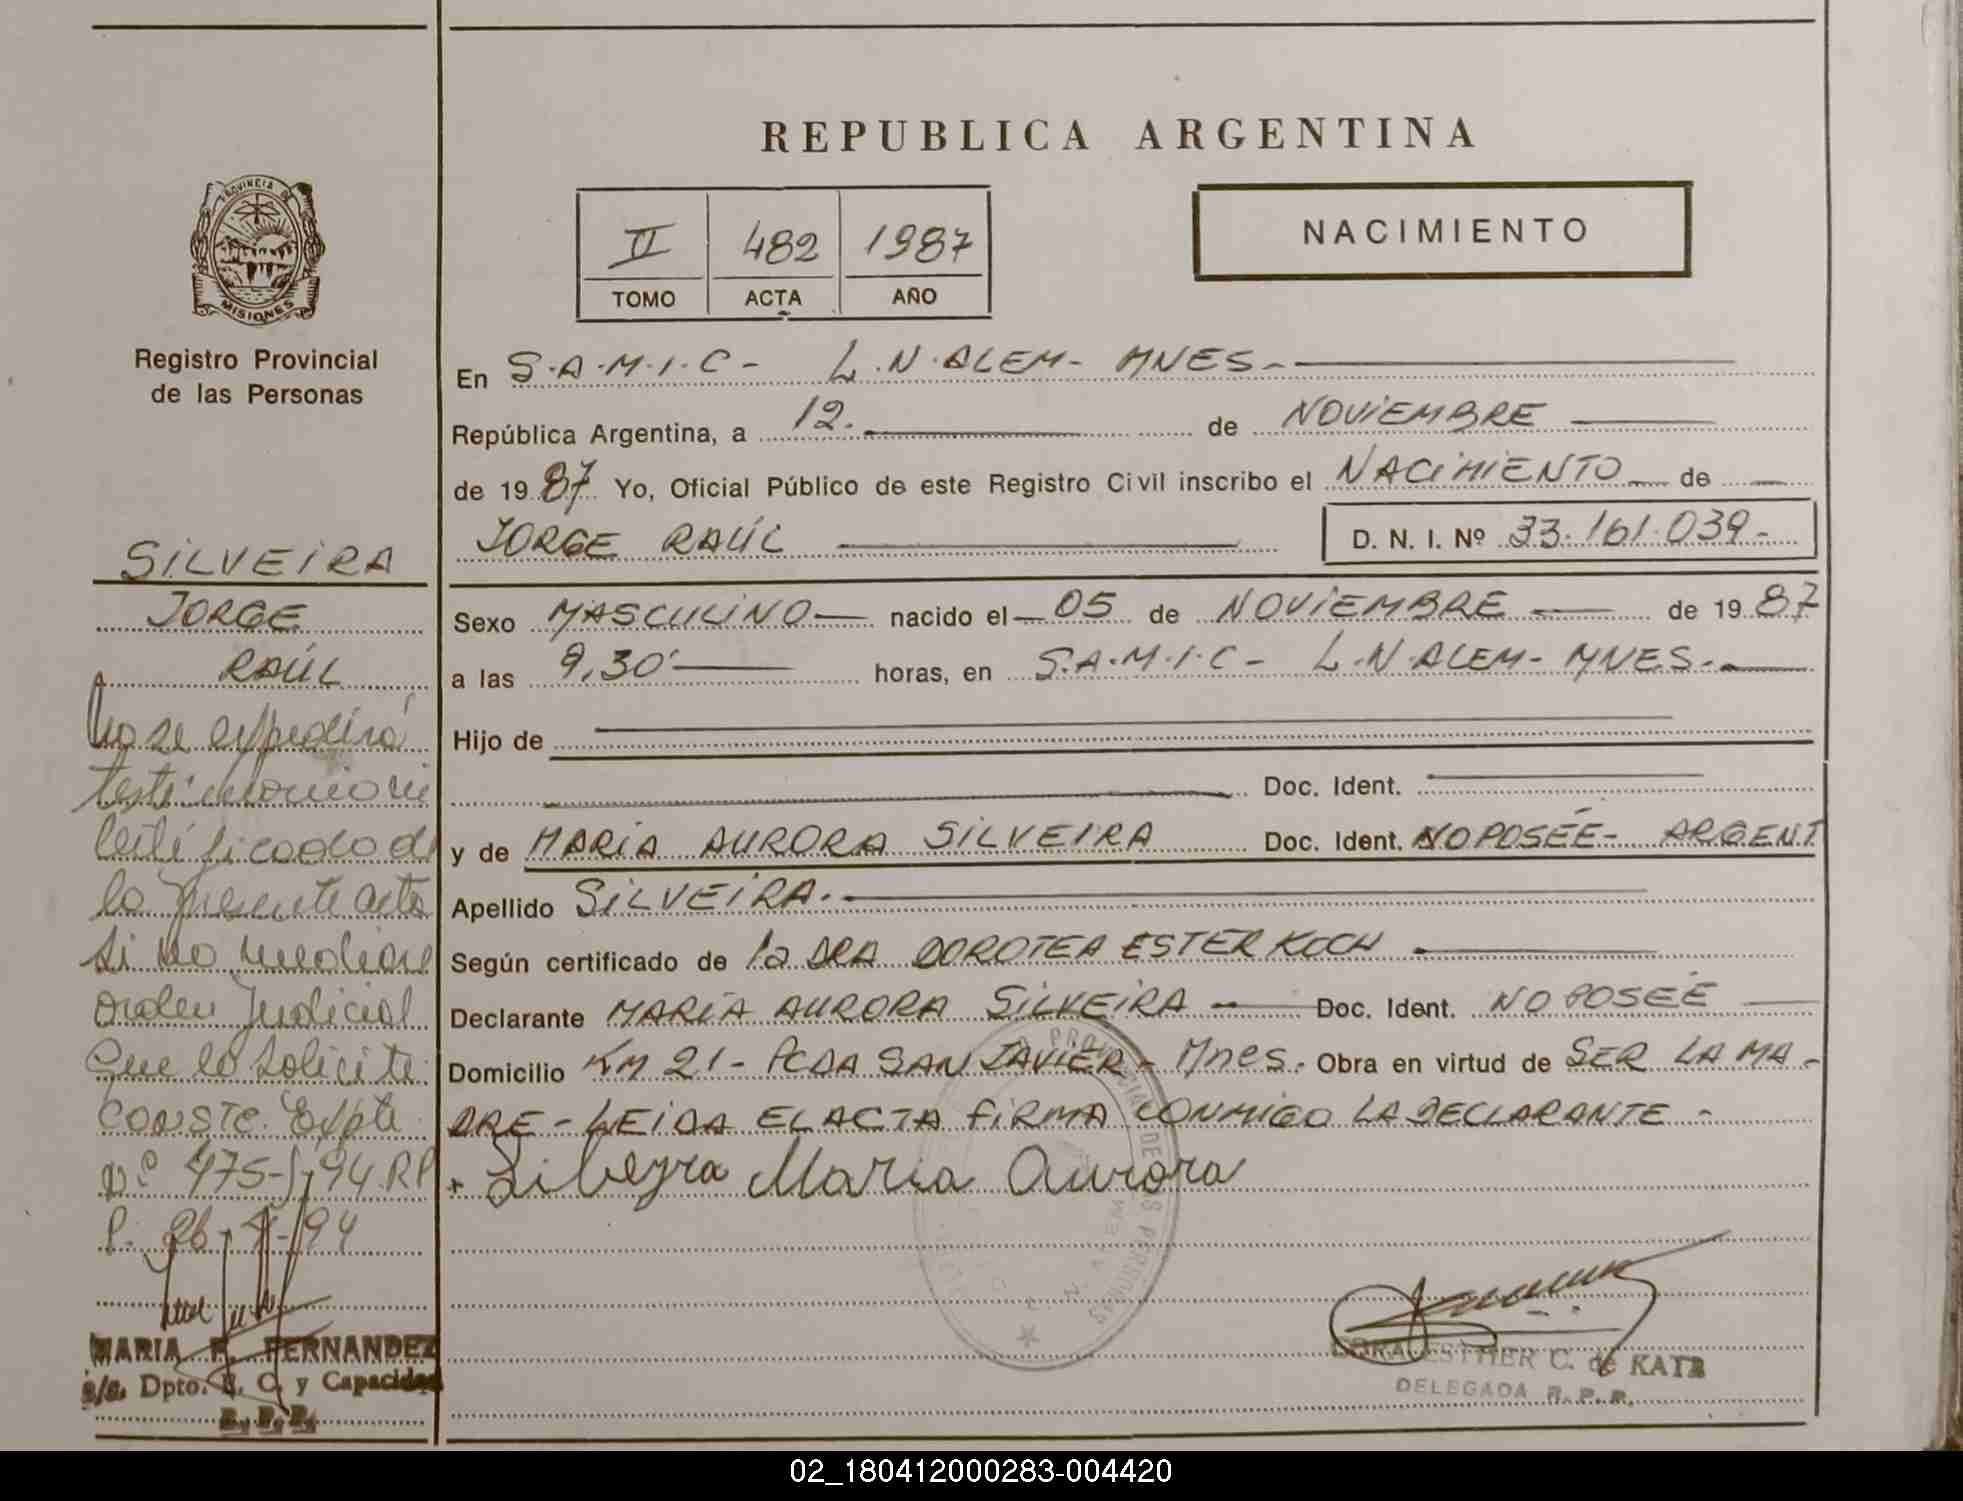 REPUBLICA ARGENTINA
PROVINCIA DE
MISIONES
Registro Provincial
de las Personas
II 482 1987
TOMO ACTA AÑO
NACIMIENTO
En S.A.M.I.C- L.N.ALEM- MNES-
República Argentina, a 12. de NOVIEMBRE
de 19 87 Yo, Oficial Público de este Registro Civil inscribo el NACIMIENTO de
JORGE RAÚL D. N. I. Nº 33.161.039-
Sexo MASCULINO nacido el 05 de NOVIEMBRE de 19 87
a las 9,30' horas, en S.A.M.I.C- L.N.ALEM- MNES.
Hijo de
Doc. Ident.
y de MARÍA AURORA SILVEIRA Doc. Ident. NO POSÉE- ARGENT
Apellido SILVEIRA.
Según certificado de la DRA DOROTEA ESTER KOCH
Declarante MARÍA AURORA SILVEIRA Doc. Ident. NO POSEÉ
Domicilio KM 21- PCDA SAN JAVIER- Mnes. Obra en virtud de SER LA MA-
DRE-LEIDA EL ACTA FIRMA CONMIGO LA DECLARANTE-
Silbeyra Maria Aurora
ESTHER C. de KATZ
DELEGADA R.P.P.
SILVEIRA
JORGE
RAÚL
No se expedirá
testimonio ni
certificado de
la presente acta
si no mediare
orden Judicial
que lo solicite.
CONSTE. Expte
Nº 475-J-94 RP
P. 26-4-94
MARIA F. FERNANDEZ
Dpto. E. C. y Capacidad
R.P.P.
02_180412000283-004420